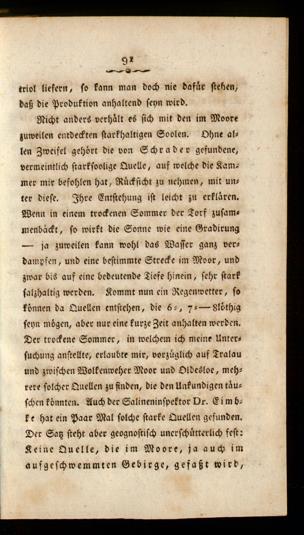 91
triol liefern, so kann man doch nie dafür stehen,
daß die Produktion anhaltend seyn wird.
Nicht anders verhält es sich mit den im Moore
zuweilen entdeckten starkhaltigen Soolen. Ohne al-
len Zweifel gehört die von Schrader gefundene,
vermeintlich starksoolige Quelle, auf welche die Kam-
mer mir befohlen hat, Rücksicht zu nehmen, mit un-
ter diese. Ihre Entstehung ist leicht zu erklären.
Wenn in einem trockenen Sommer der Torf zusam-
menbäckt, so wirkt die Sonne wie eine Gradirung
— ja zuweilen kann wohl das Wasser ganz ver-
dampfen, und eine bestimmte Strecke im Moor, und
zwar bis auf eine bedeutende Tiefe hinein, sehr stark
salzhaltig werden. Kommt nun ein Regenwetter, so
können da Quellen entstehen, die 6-, 7-—8löthig
seyn mögen, aber nur eine kurze Zeit anhalten werden.
Der trockene Sommer, in welchem ich meine Unter-
suchung anstellte, erlaubte mir, vorzüglich auf Tralau
und zwischen Wolkenweher Moor und Oldesloe, meh-
rere solcher Quellen zu finden, die den Unkundigen täu-
schen könnten. Auch der Salineninspektor Dr. Eimb-
ke hat ein Paar Mal solche starke Quellen gefunden.
Der Satz steht aber geognostisch unerschütterlich fest:
Keine Quelle, die im Moore, ja auch im
aufgeschwemmten Gebirge, gefaßt wird,